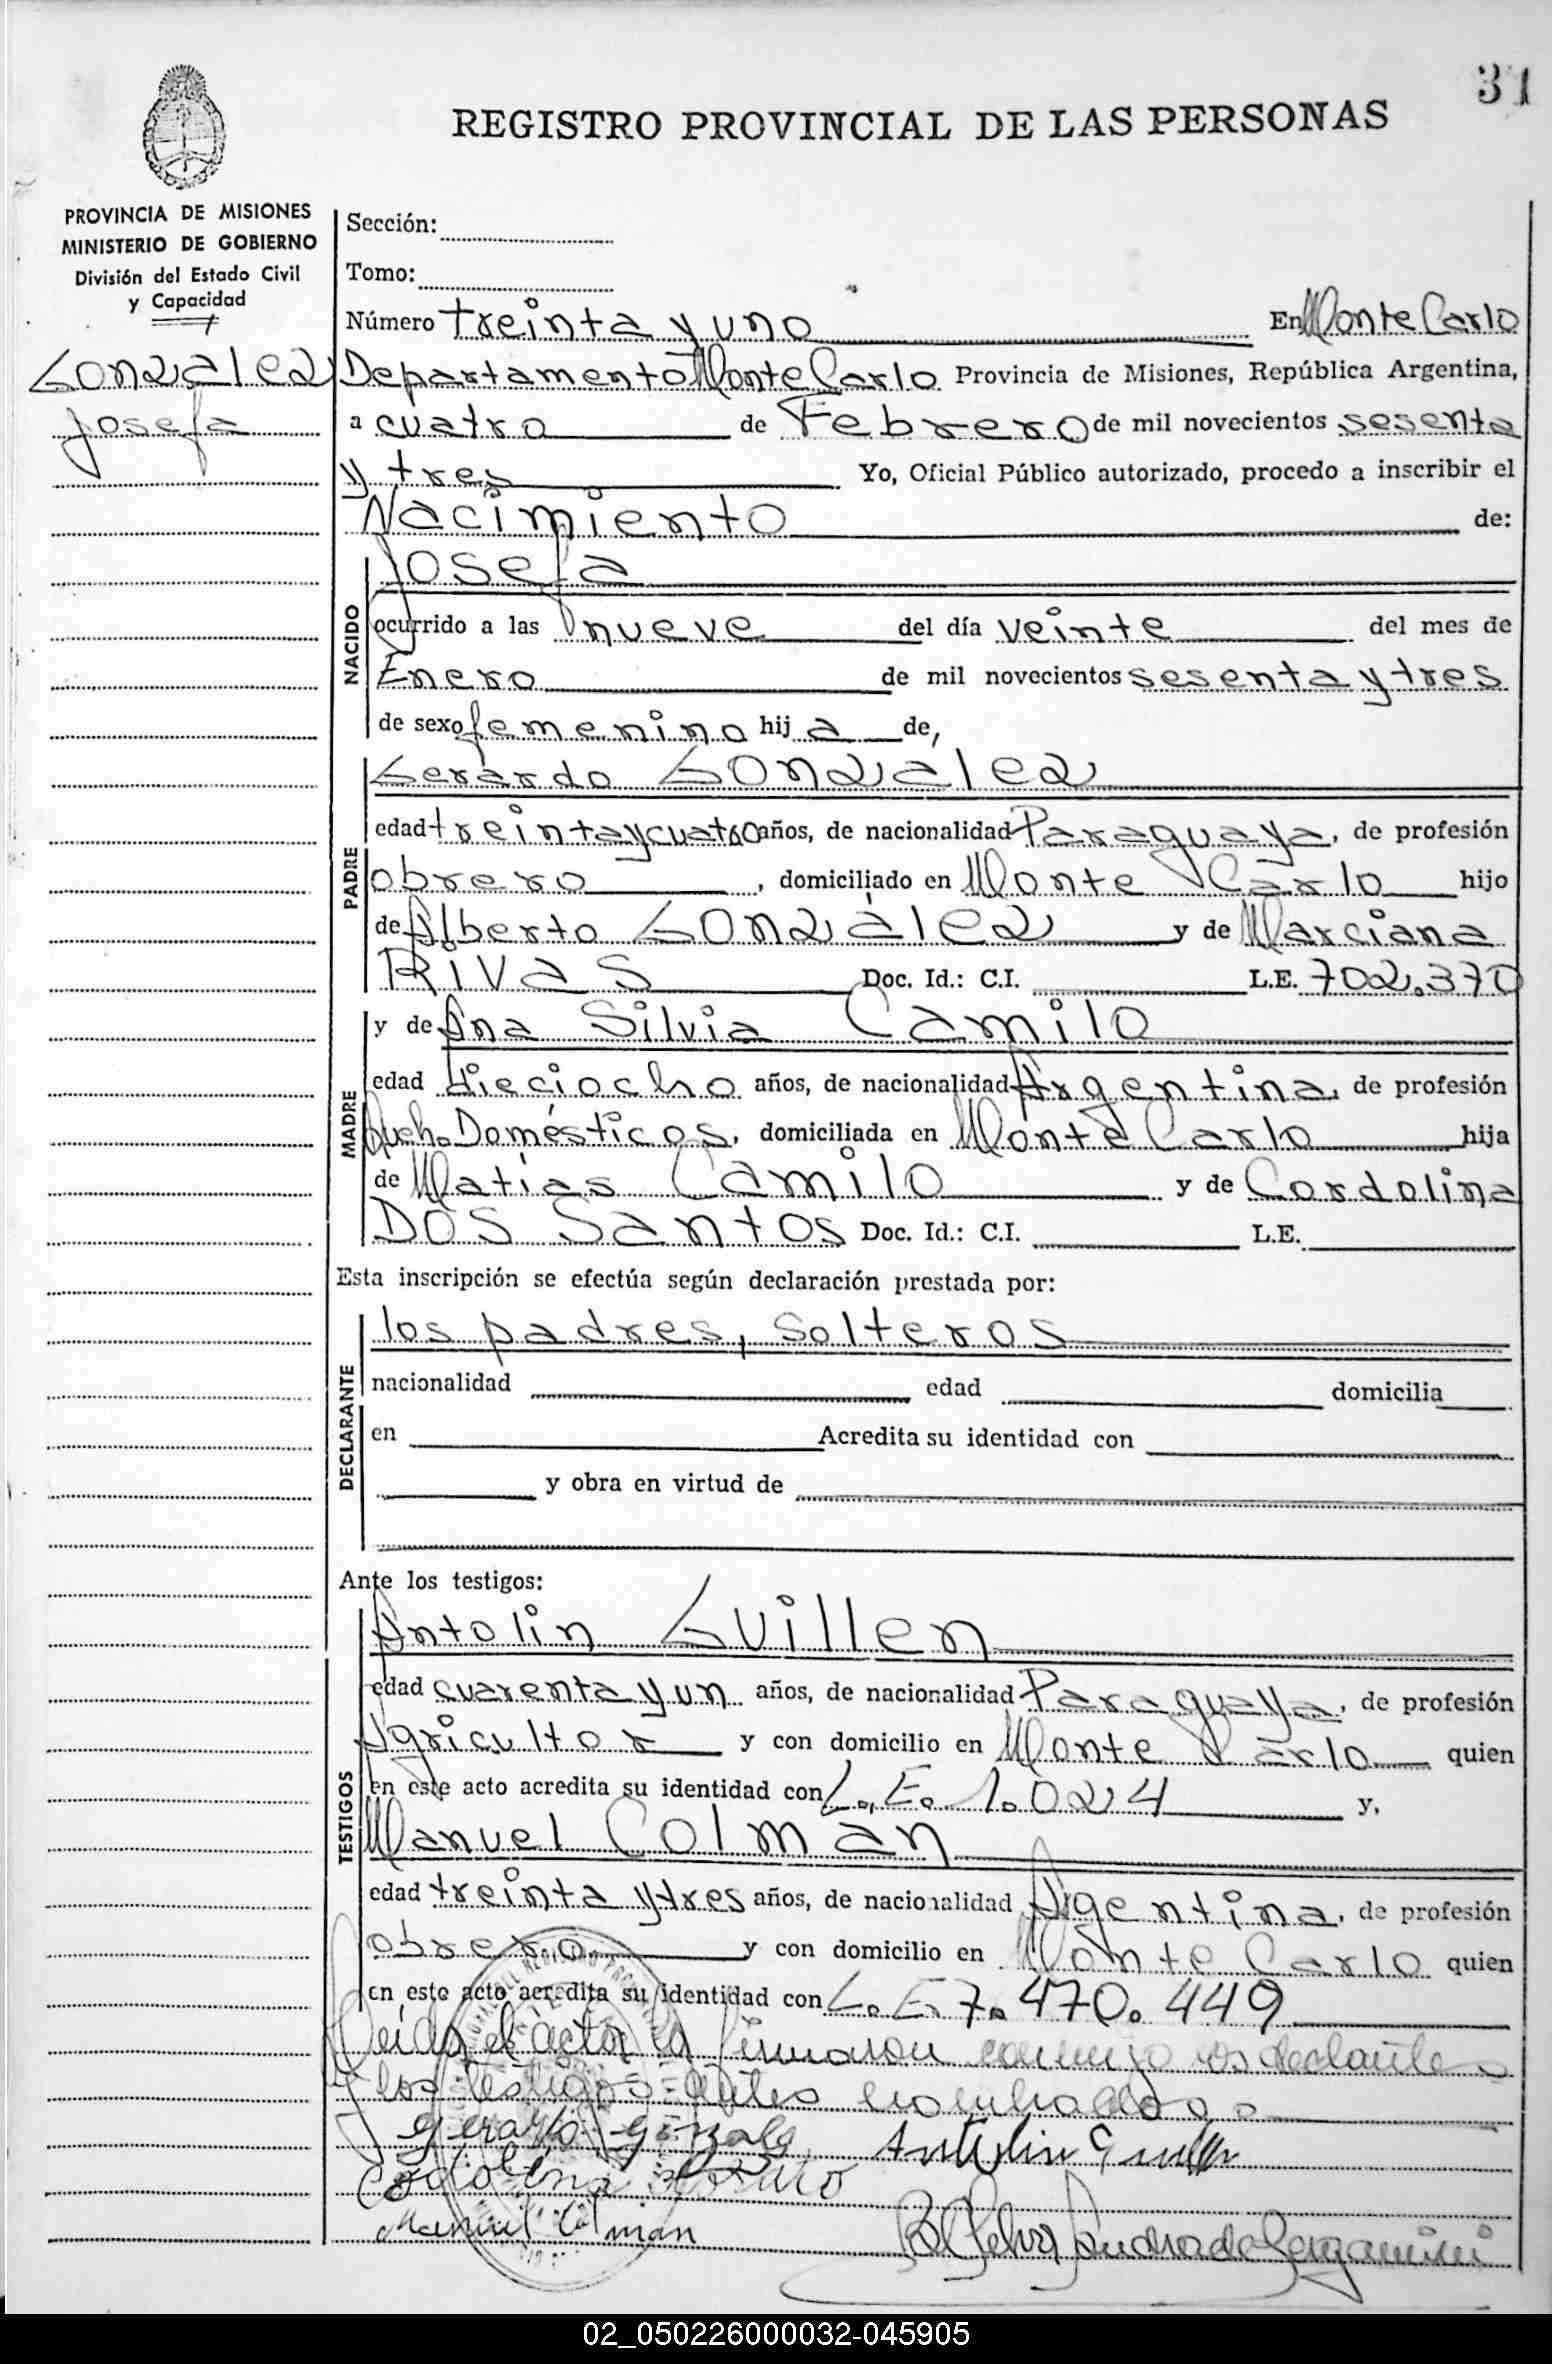 31
REGISTRO PROVINCIAL DE LAS PERSONAS
PROVINCIA DE MISIONES
MINISTERIO DE GOBIERNO
División del Estado Civil
y Capacidad
González
Josefa
Sección:
Tomo:
Número treinta y uno En Monte Carlo
Departamento Monte Carlo Provincia de Misiones, República Argentina,
a cuatro de Febrero de mil novecientos sesenta
y tres Yo, Oficial Público autorizado, procedo a inscribir el
Nacimiento de:
NACIDO
Josefa
ocurrido a las nueve del día veinte del mes de
Enero de mil novecientos sesenta y tres
de sexo femenino hij a de,
PADRE
Gerardo González
edad treinta y cuatro años, de nacionalidad Paraguaya, de profesión
obrero, domiciliado en Monte Carlo hijo
de Alberto González y de Marciana
RIVAS Doc. Id.: C.I. L.E. 702.370
MADRE
y de Ana Silvia Camilo
edad dieciocho años, de nacionalidad Argentina, de profesión
Queh. Domésticos, domiciliada en Monte Carlo hija
de Matías Camilo y de Cordolina
DOS Santos Doc. Id.: C.I. L.E.
Esta inscripción se efectúa según declaración prestada por:
DECLARANTE
los padres, solteros
nacionalidad edad domicilia
en Acredita su identidad con
y obra en virtud de
Ante los testigos:
TESTIGOS
Antolin Guillen
edad cuarenta y un años, de nacionalidad Paraguaya, de profesión
Agricultor y con domicilio en Monte Carlo quien
en este acto acredita su identidad con L.E. 1.024 y,
Manuel Colman
edad treinta y tres años, de nacionalidad Argentina, de profesión
obrero y con domicilio en Monte Carlo quien
en este acto acredita su identidad con L.E. 7.470.449
Leída el acta la firmaron conmigo los declarantes
y los testigos antes nombrados
Gerardo Gonzale Antolin Guillen
Manuel Colman
02_050226000032-045905